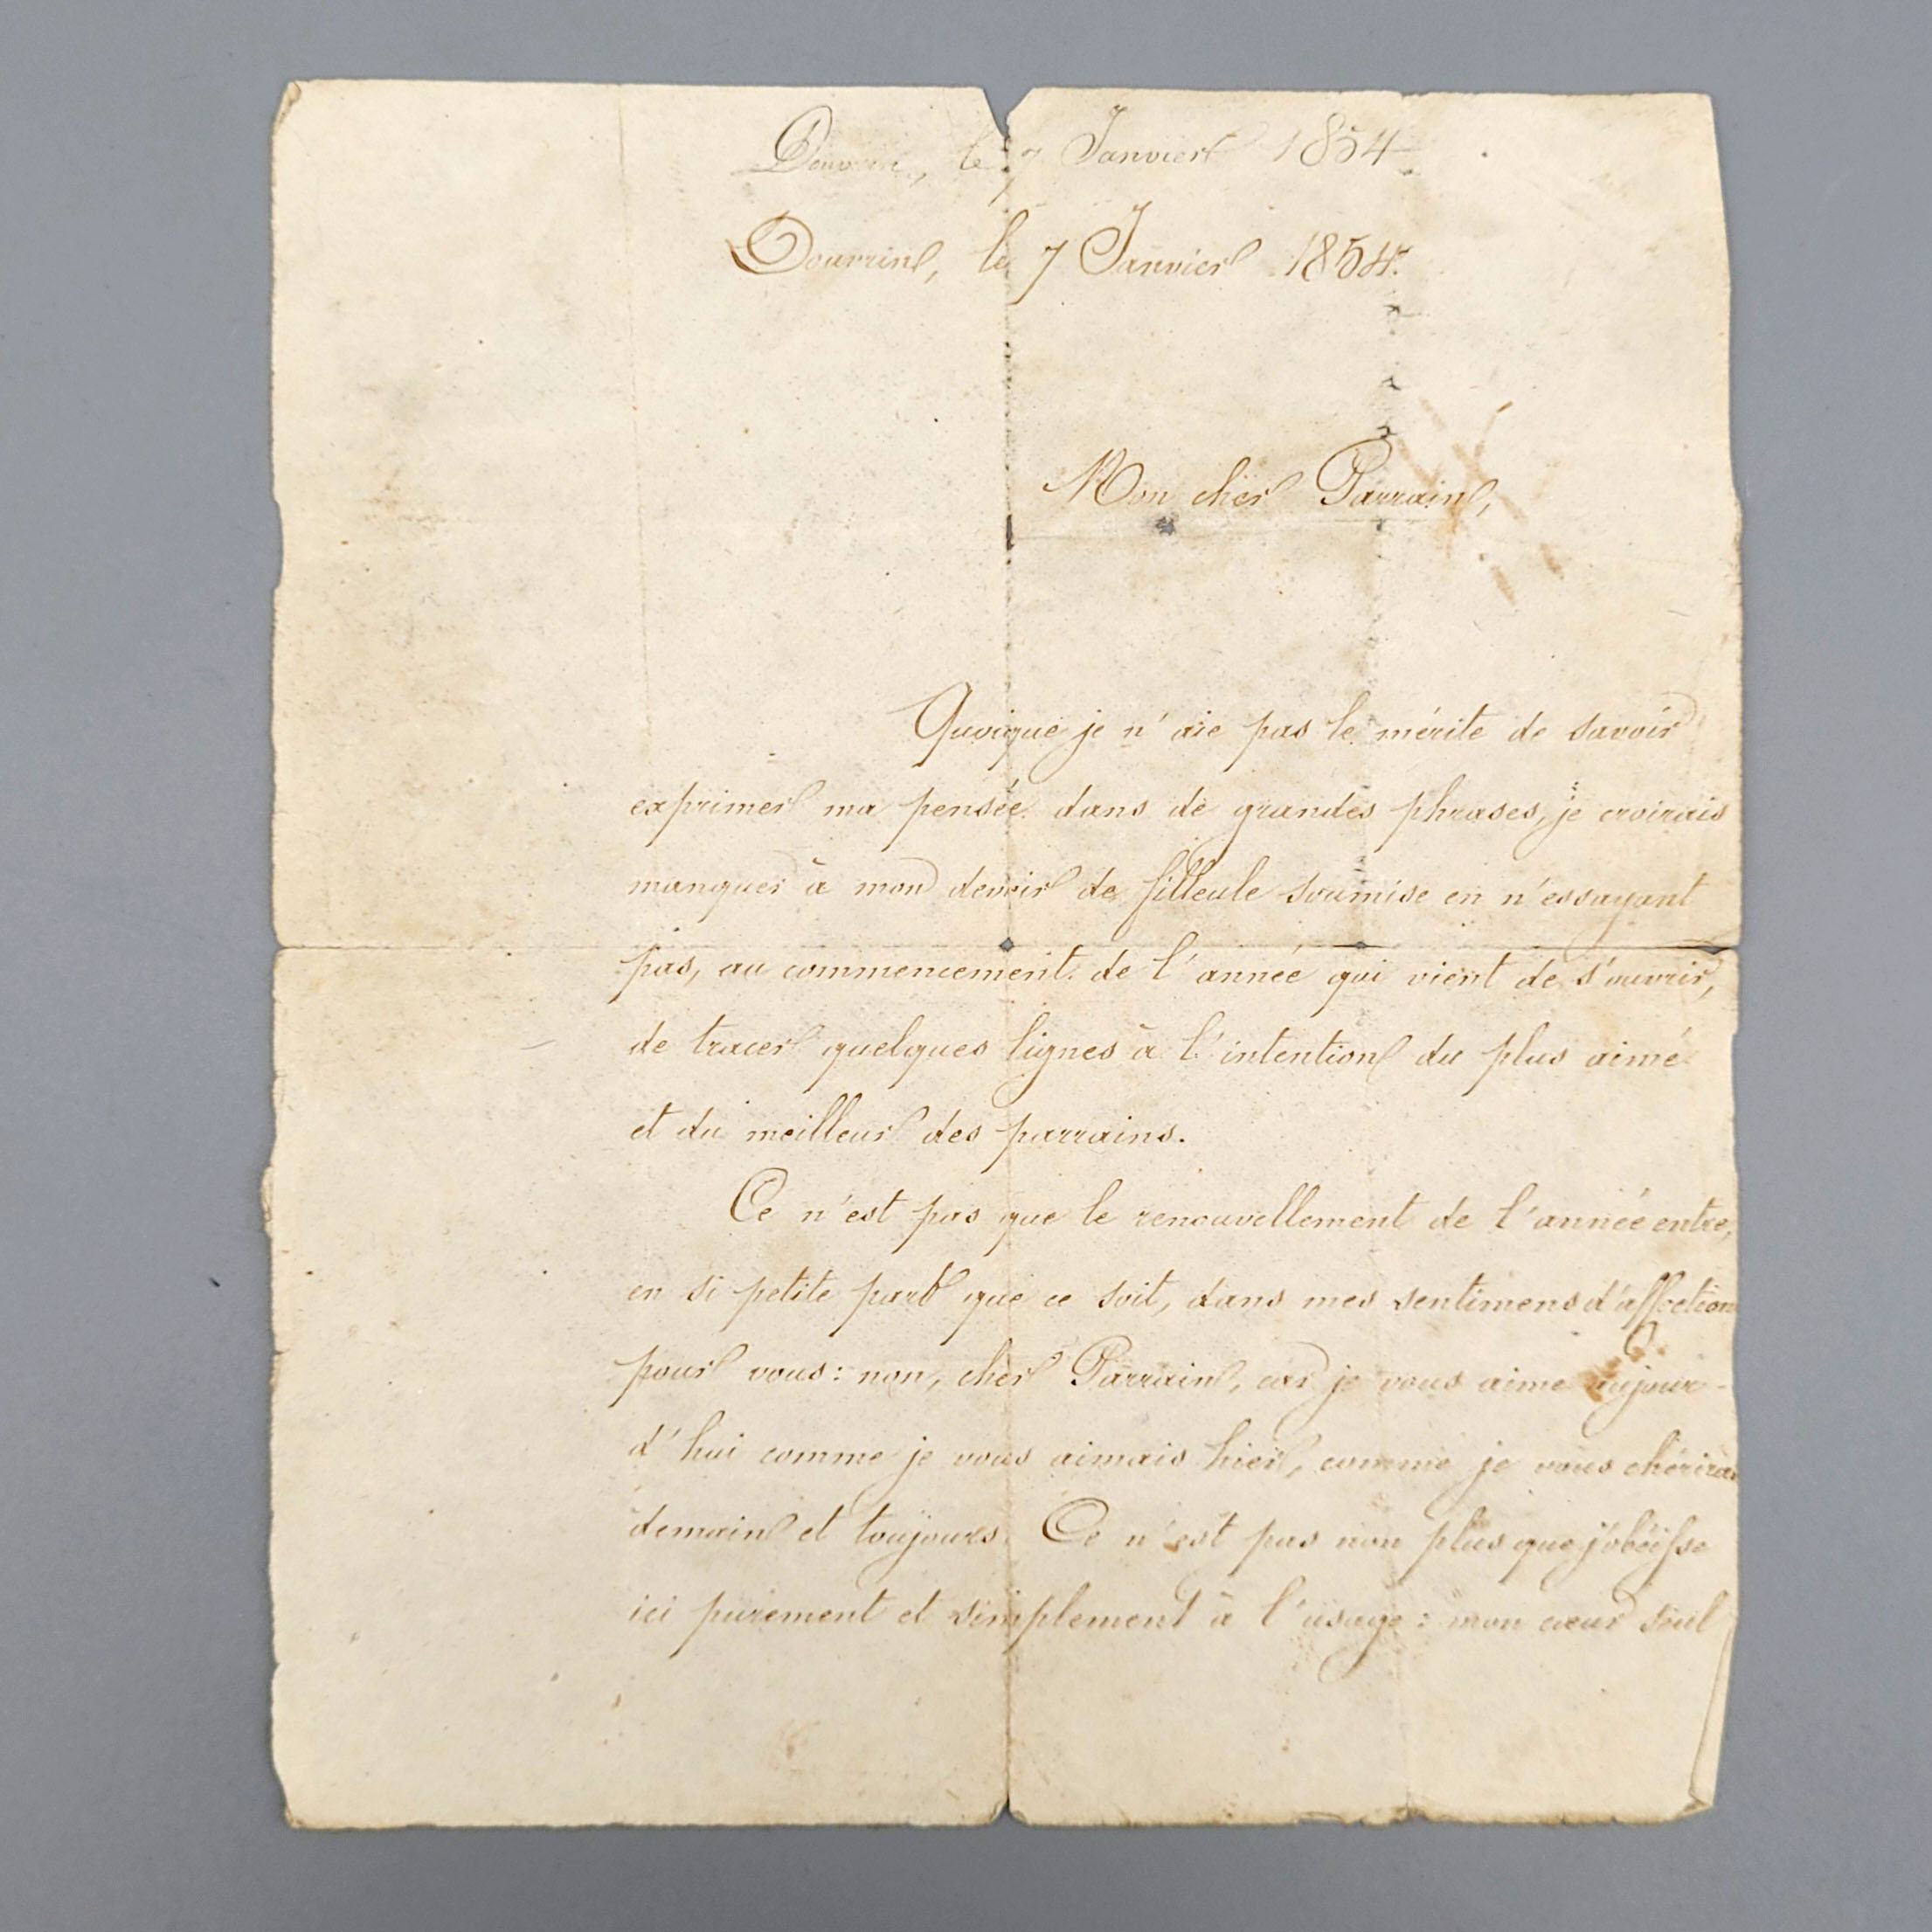 Douvrin, le 7 Janvier 1854
Douvrin, le 7 Janvier 1854.
Mon cher Parrain,
Quoique je n'aie pas le mérite de savoir
exprimer ma pensée dans de grandes phrases, je croirais
manquer à mon devoir de filleule soumise en n'essayant
pas, au commencement de l'année qui vient de s'ouvrir,
de tracer quelques lignes à l'intention du plus aimé
et du meilleur des parrains.
Ce n'est pas que le renouvellement de l'année entre,
en si petite part que ce soit, dans mes sentimens d'affection
pour vous: non, cher Parrain, car je vous aime aujour-
d'hui comme je vous aimais hier, comme je vous chérirai
demain et toujours. Ce n'est pas non plus que j'obéisse
ici purement et simplement à l'usage: mon cœur seul